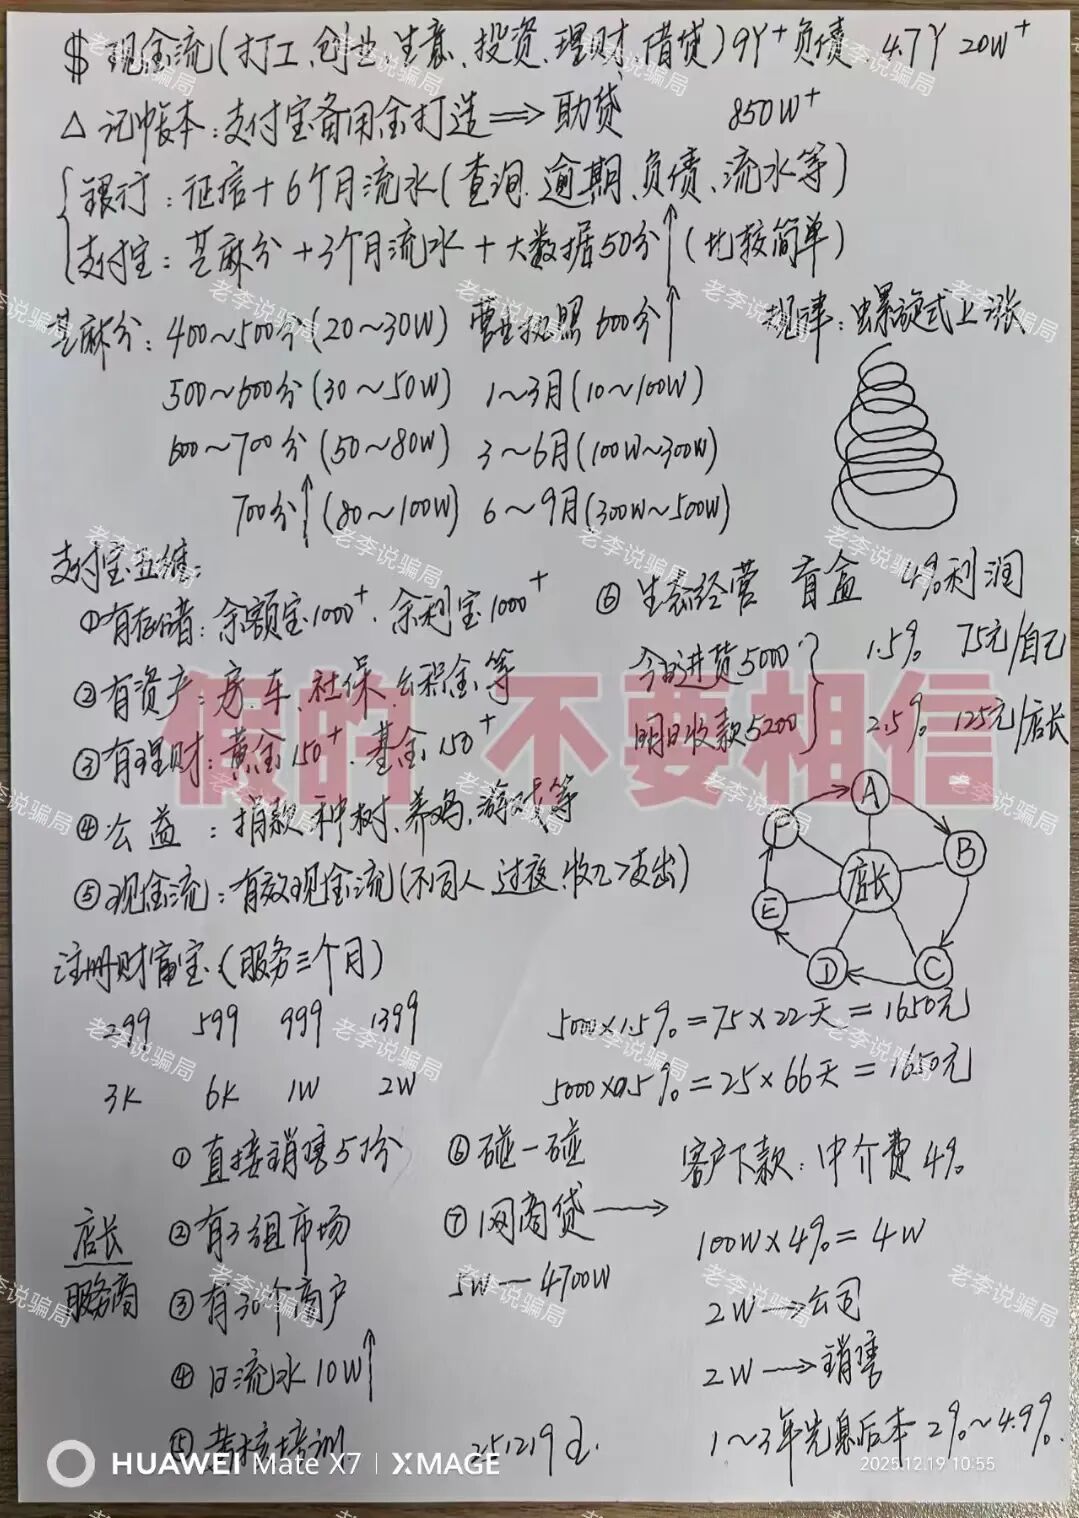 $ 现金流(打工、创业、生意、投资、理财、借贷) 9Y+负债 4.7Y 20W+
△ 记帐本:支付宝备用金打造⟹助贷 850W+
银行:征信+6个月流水(查询、逾期、负债、流水等)
支付宝:芝麻分+3个月流水+大数据50分↑(比较简单)
芝麻分:400~500分(20~30W) 营业执照 600分↑ 规律:螺旋式上涨
500~600分(30~50W) 1~3月(10~100W)
600~700分(50~80W) 3~6月(100W~300W)
700分↑(80~100W) 6~9月(300W~500W)
支付宝五维:
①有存储者:余额宝1000+、余利宝1000+
②有资产:房、车、社保、公积金等
③有理财:黄金150+、基金150+
④公益:捐款、种树、养鸡、游戏等
⑤现金流:有效现金流(不同人、过夜、收入>支出)
⑥生态经营 盲盒 4%利润
今日进货5000 1.5% 75元/自己
明日收款5200 2.5% 125元/店长
假的 不要相信
A
B
C
D
E
F
店长
注册财富宝(服务三个月)
299 599 999 1399
3K 6K 1W 2W
5000×1.5%=75×22天=1650元
5000×0.5%=25×66天=1650元
店长
服务商
①直接销售5份
②有3组市场
③有30个商户
④日流水10W↑
⑤考核培训
⑥碰一碰
⑦网商贷→
5W—4700W
251219
客户下款:中介费4%
100W×4%=4W
2W→公司
2W→销售
1~3年先息后本2%~4.9%.
HUAWEI Mate X7 | XMAGE
2025.12.19 10:55
老李说骗局